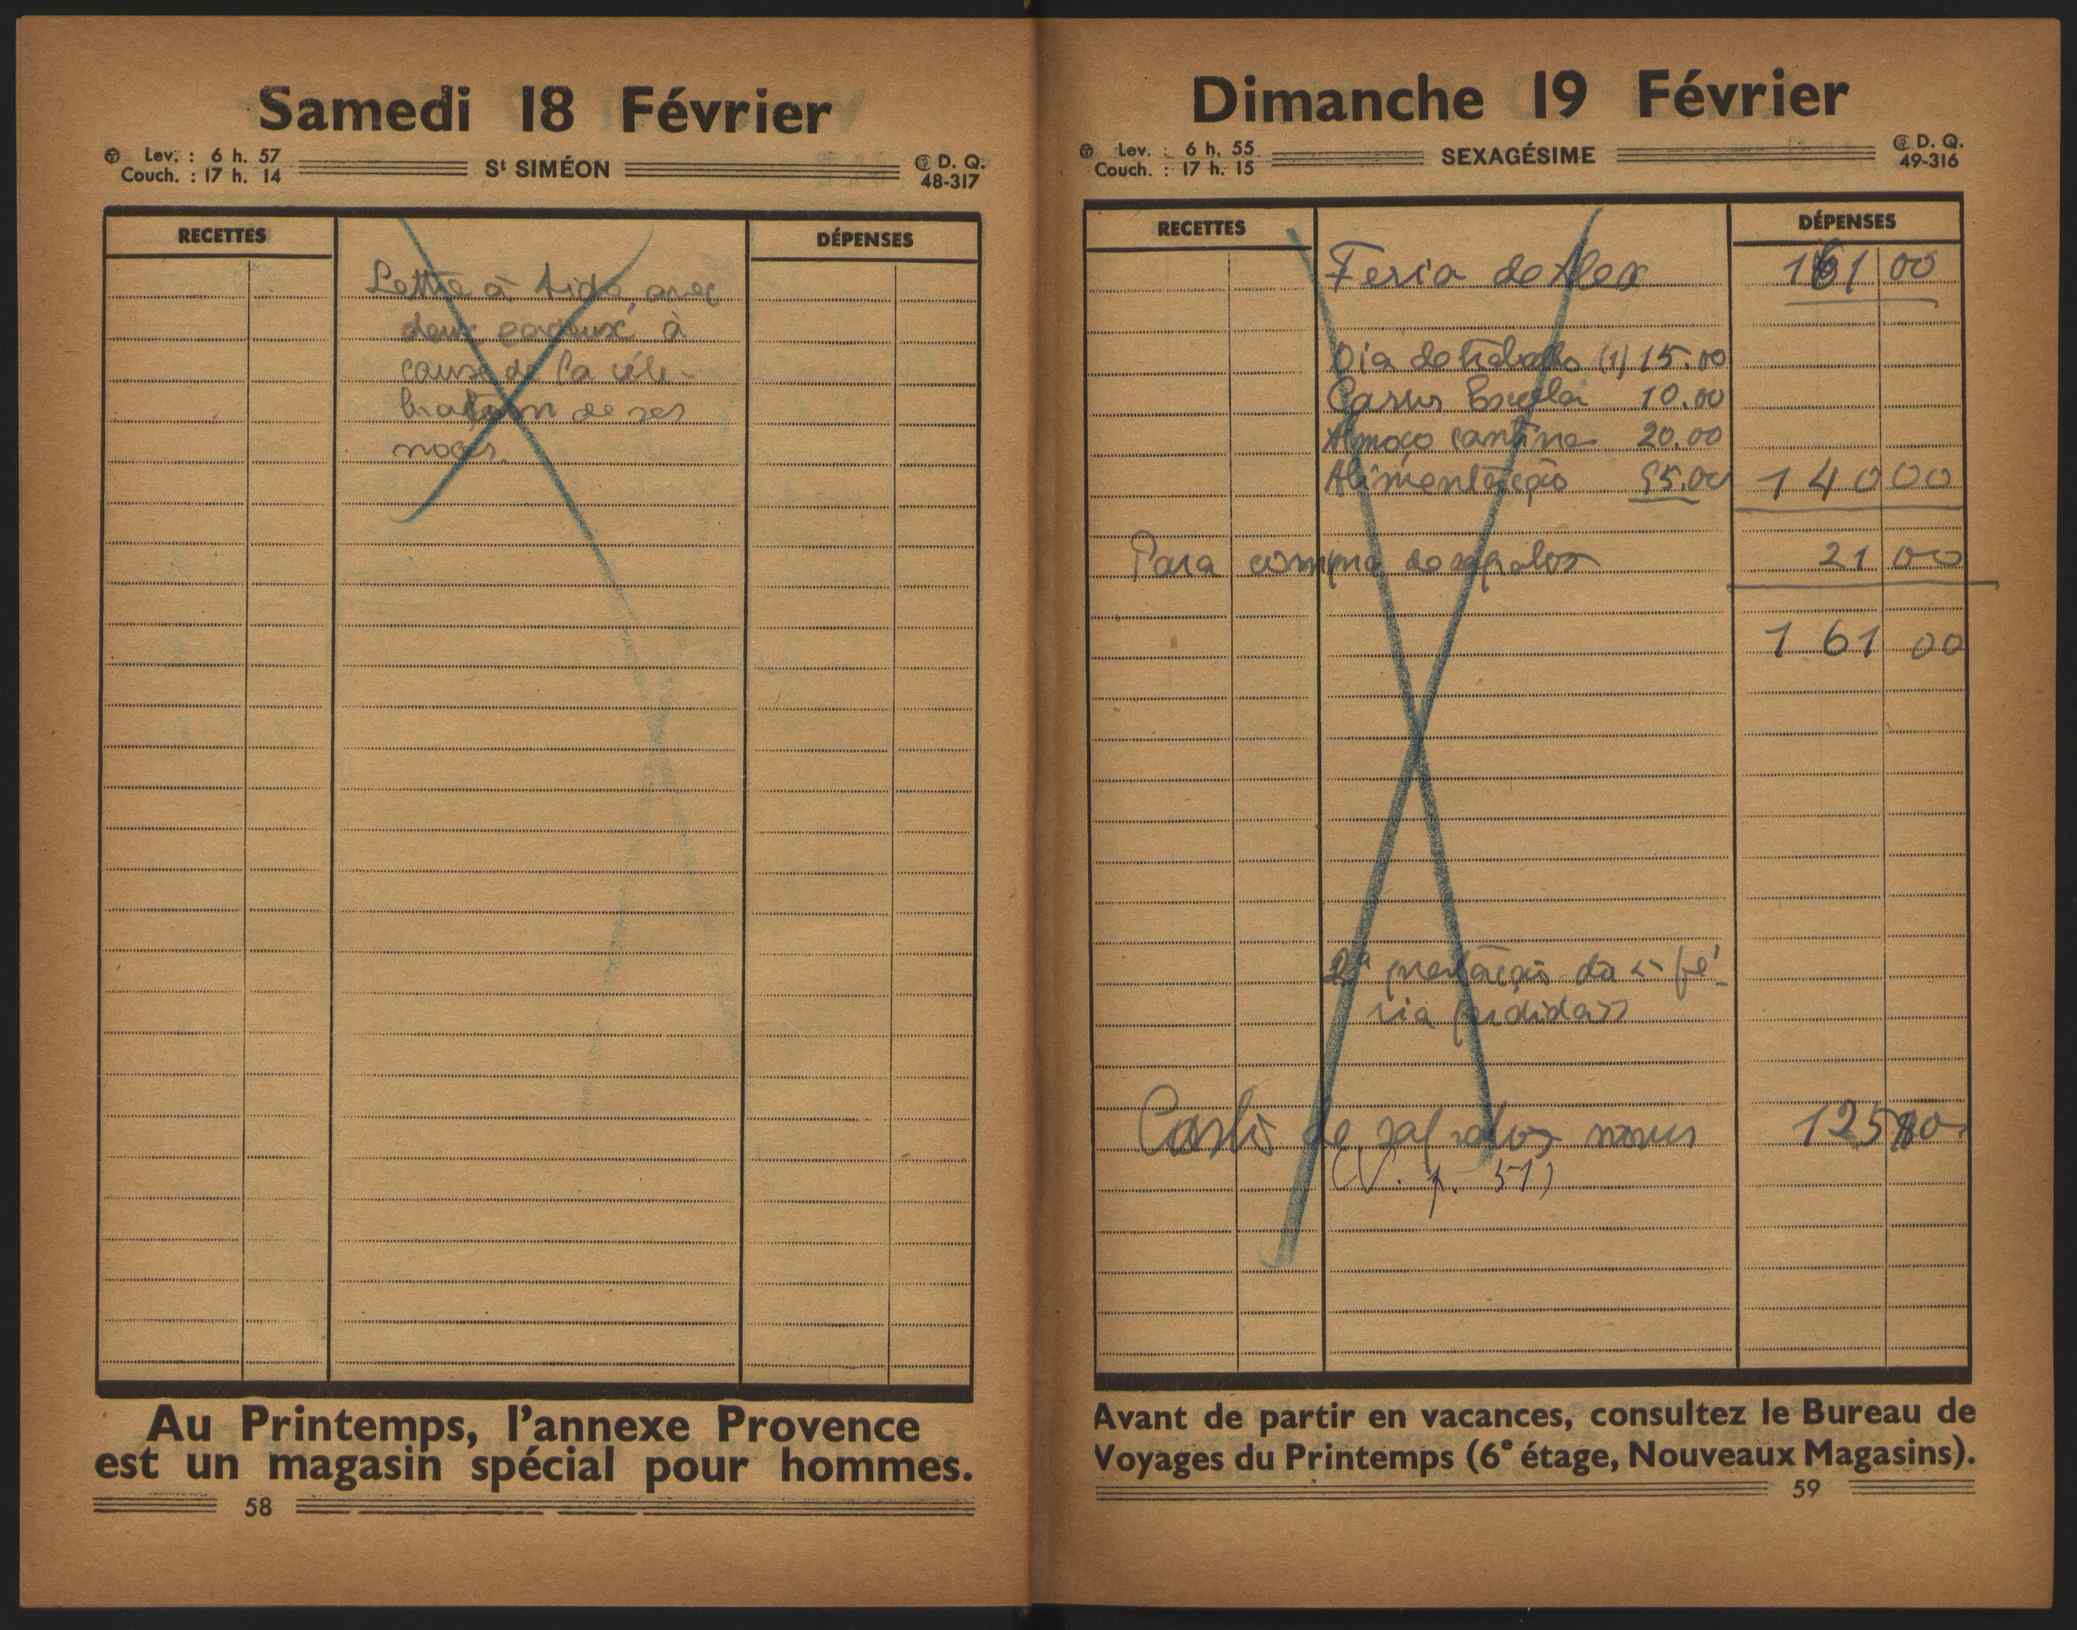 Samedi 18 Février
Lev. : 6 h. 57
Couch. : 17 h. 14
St SIMÉON
D. Q.
48-317
RECETTES
DÉPENSES
Lettre à Aida, avec
deux à
cause de la célé-
bration de ses
noces.
Au Printemps, l'annexe Provence
est un magasin spécial pour hommes.
58
Dimanche 19 Février
Lev. : 6 h. 55
Couch. : 17 h. 15
SEXAGÉSIME
D. Q.
49-316
RECETTES
DÉPENSES
Feria de Alex 161 00
Dia de trabalho (1) 15.00
Escola 10.00
Almoço cantina 20.00
Alimentação 95.00 140 00
Para compra de sapatos 21 00
161 00
2ª prestação da fé-
ria
Custo de sapatos novos
(V. p. 51)
Avant de partir en vacances, consultez le Bureau de
Voyages du Printemps (6e étage, Nouveaux Magasins).
59